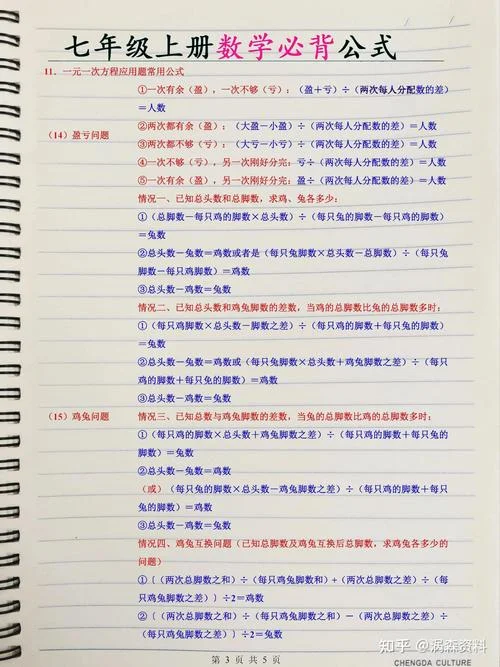 七年级上册数学必背公式
11. 一元一次方程应用题常用公式
①一次有余（盈），一次不够（亏）：（盈＋亏）÷（两次每人分配数的差）
＝人数
（14）盈亏问题
②两次都有余（盈）：（大盈－小盈）÷（两次每人分配数的差）＝人数
③两次都不够（亏）：（大亏－小亏）÷（两次每人分配数的差）＝人数
④一次不够（亏），另一次刚好分完：亏÷（两次每人分配数的差）＝人数
⑤一次有余（盈），另一次刚好分完：盈÷（两次每人分配数的差）＝人数
情况一、已知总头数和总脚数，求鸡、兔各多少：
①（总脚数－每只鸡的脚数×总头数）÷（每只兔的脚数－每只鸡的脚数）
＝兔数
②总头数－兔数＝鸡数或者是（每只兔脚数×总头数－总脚数）÷（每只兔
脚数－每只鸡脚数）＝鸡数
③总头数－鸡数＝兔数
情况二、已知总头数和鸡兔脚数的差数，当鸡的总脚数比兔的总脚数多时：
①（每只鸡脚数×总头数－脚数之差）÷（每只鸡的脚数＋每只兔的脚数）
＝兔数
②总头数－兔数＝鸡数或（每只兔脚数×总头数＋鸡兔脚数之差）÷（每只
鸡的脚数＋每只兔的脚数）＝鸡数
③总头数－鸡数＝兔数
（15）鸡兔问题
情况三、已知总数与鸡兔脚数的差数，当兔的总脚数比鸡的总脚数多时：
①（每只鸡的脚数×总头数＋鸡兔脚数之差）÷（每只鸡的脚数＋每只兔的
脚数）＝兔数
②总头数－兔数＝鸡数
（或）（每只兔的脚数×总头数－鸡兔脚数之差）÷（每只鸡的脚数＋每只
兔的脚数）＝鸡数
③总头数－鸡数＝兔数
情况四、鸡兔互换问题（已知总脚数及鸡兔互换后总脚数，求鸡兔各多少的
问题）
①〔（两次总脚数之和）÷（每只鸡兔脚数和）+（两次总脚数之差）÷（每
只鸡兔脚数之差）〕÷2＝鸡数
②〔（两次总脚数之和）÷（每只鸡兔脚数之和）－（两次总脚数之差）÷
（每只鸡兔脚数之差）〕÷2＝兔数
第 3 页 共 5 页
知乎 @涡森资料
CHENGDA CULTURE